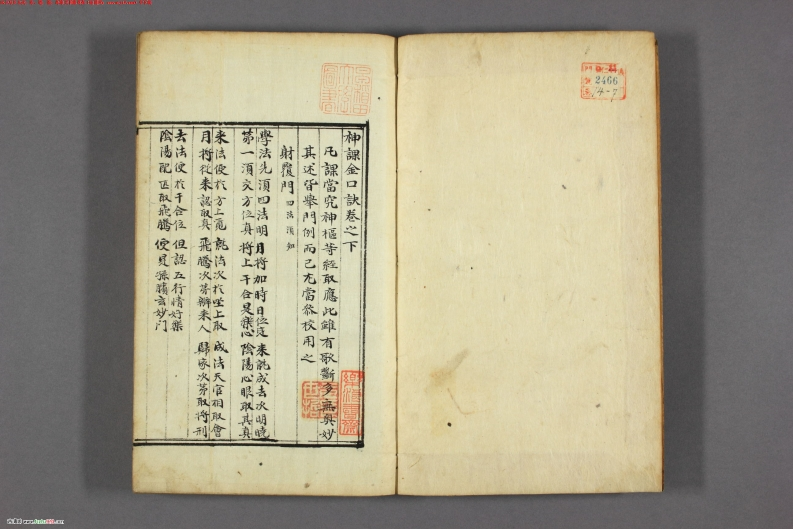 神課金口訣卷之下
凡課當究神樞等經取應此雖有歌斷多無奧妙
其述皆舉門例而已尤當叅校用之
財覆門 四法須知
學法先須四法明 月將加時日位定 來就成去次明曉
第一須交方位真 將上干合是樂心 陰陽心眼取其真
來法便於方上覓 就法次於坐上取 成法天官相取會
月將從來認取真 飛騰次第辦來人 歸家次第取將刑
去法便於干合位 但認五行情好樂
陰陽配匹取飛騰 便是孫臏玄妙门
2466
4-7